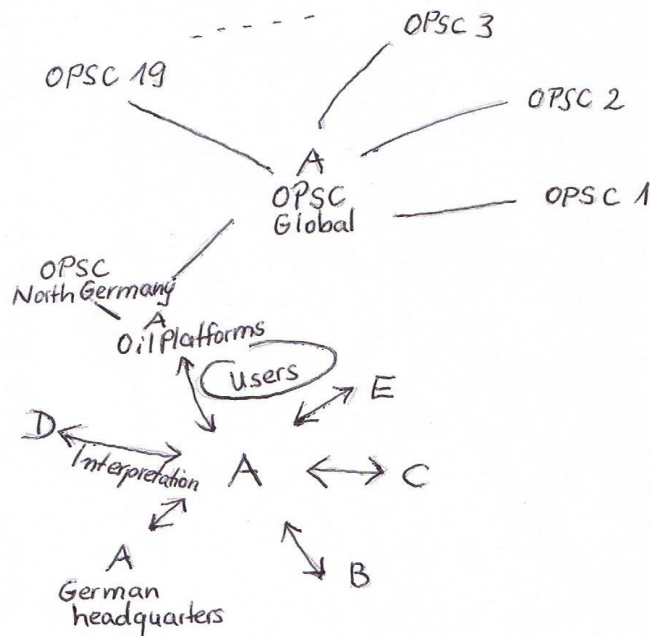 OPSC 3
OPSC 19
OPSC 2
A
OPSC
Global
OPSC 1
OPSC
North Germany
A
Oil Platforms
users
E
D
Interpretation
A
C
A
German
headquarters
B